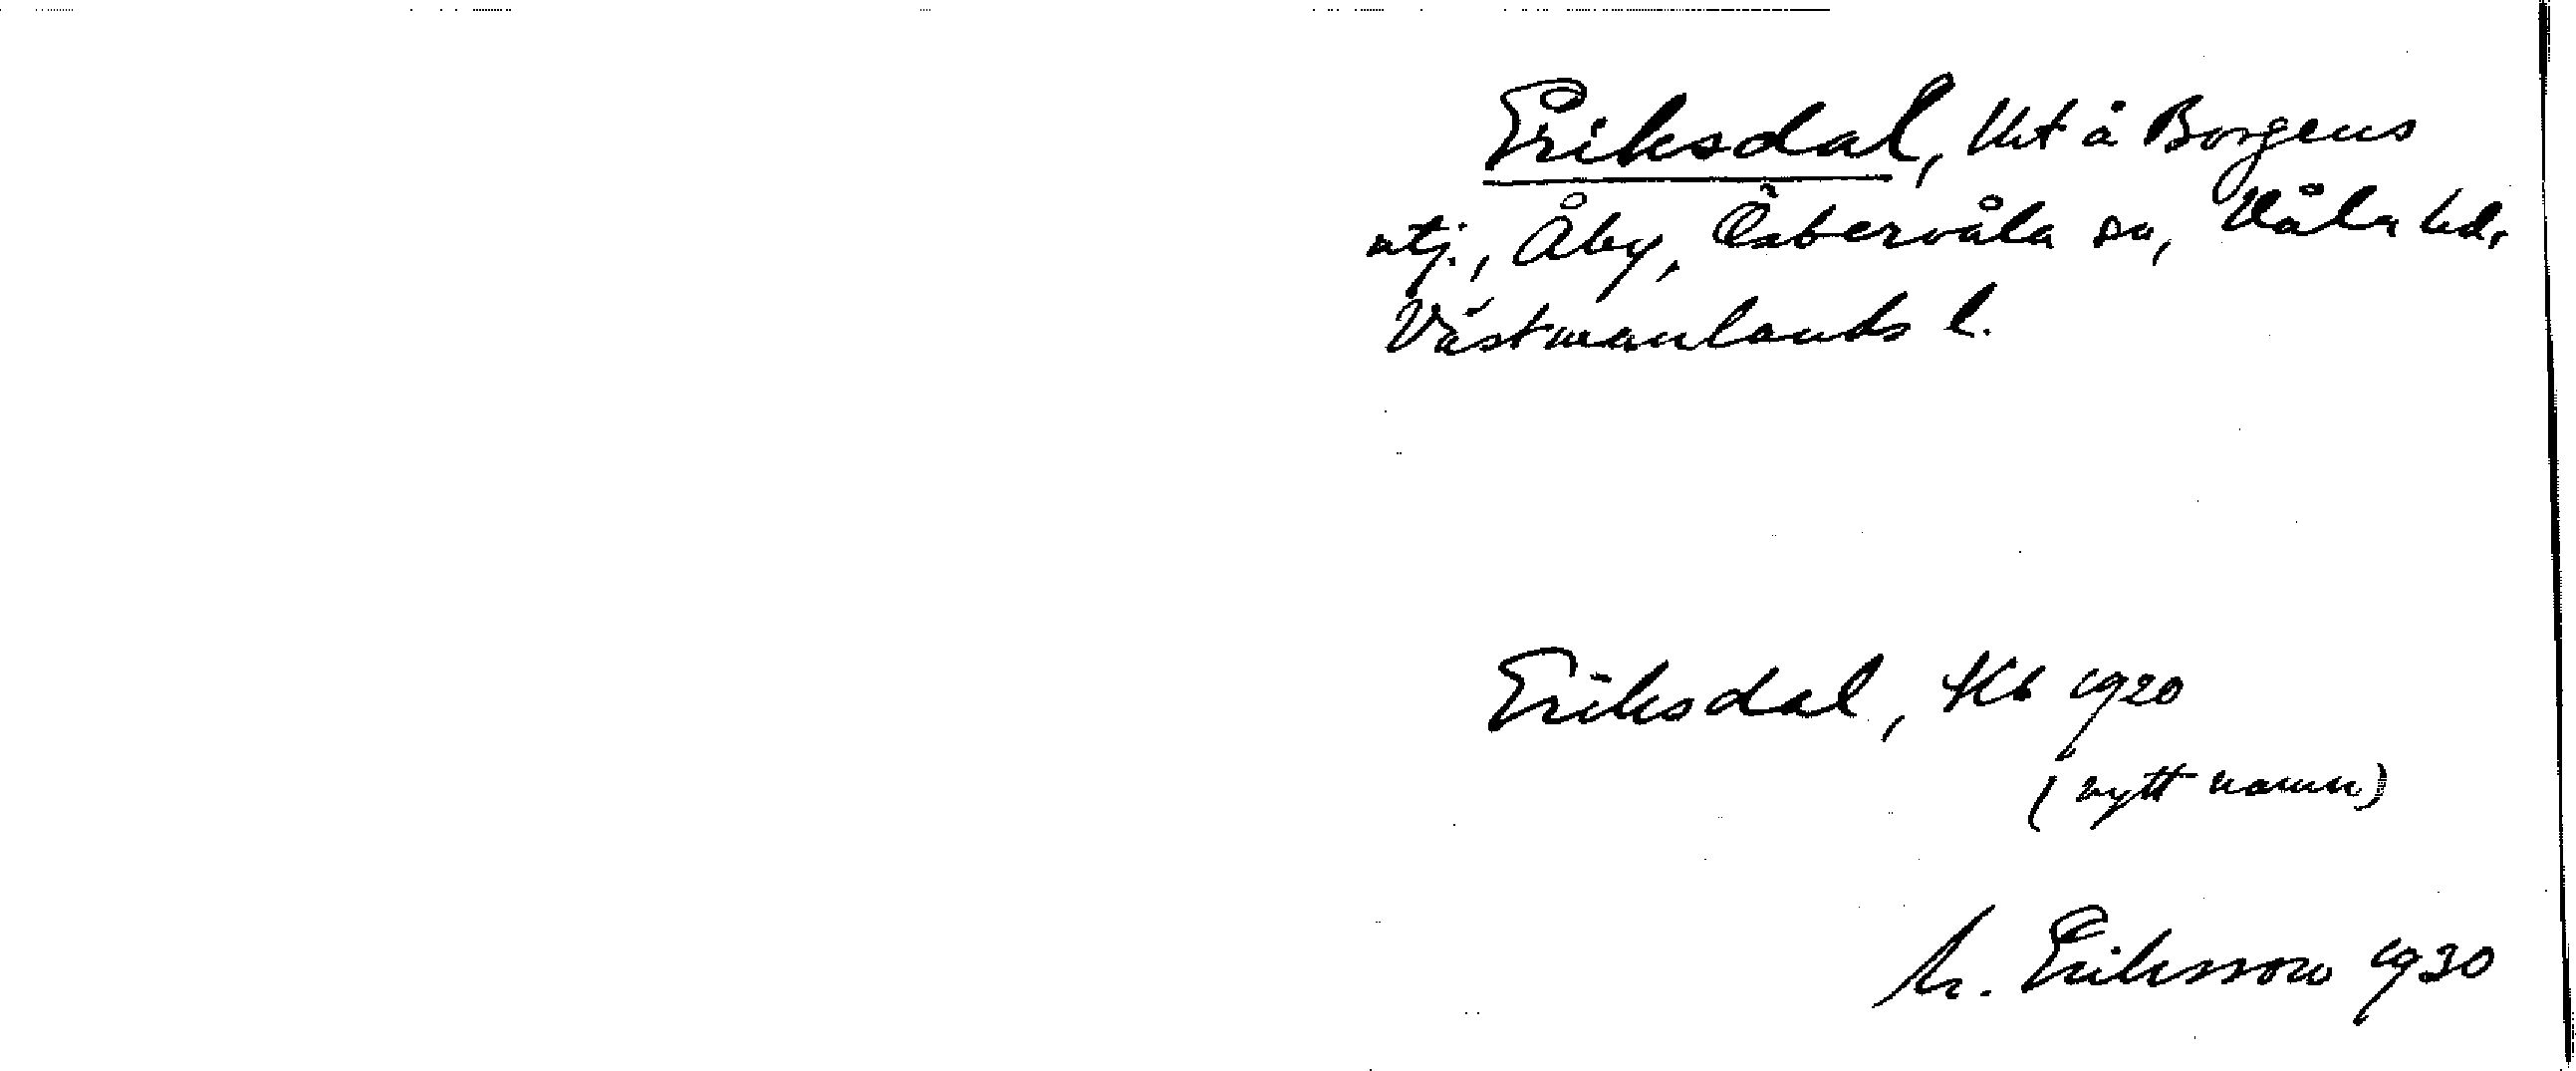 Eriksdal, lht å Borgens
utj., Åby, Östervåla sn, Våla hd,
Västmanlands l.
Eriksdal, Kb 1920
(nytt namn)
M. Eriksson 1930